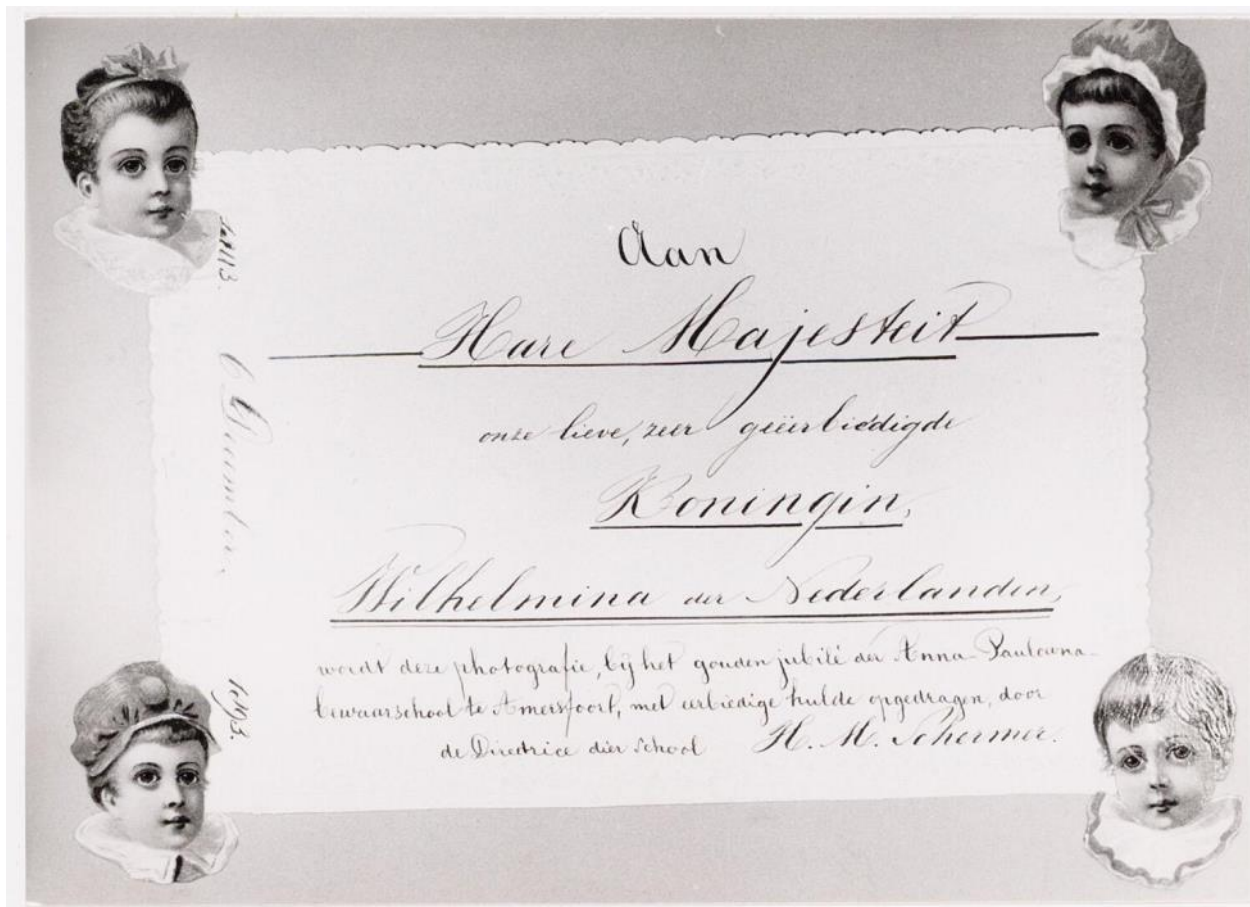 Aan
Hare Majesteit
onze lieve, zeer geëerbiedigde
Koningin,
Wilhelmina der Nederlanden,
wordt deze photografie, bij het gouden jubilé der Anna-Paulowna-
bewaarschool te Amersfoort, met eerbiedige hulde opgedragen, door
de Directrice dier school H. M. Schermer.
1843.
6 December
1893.